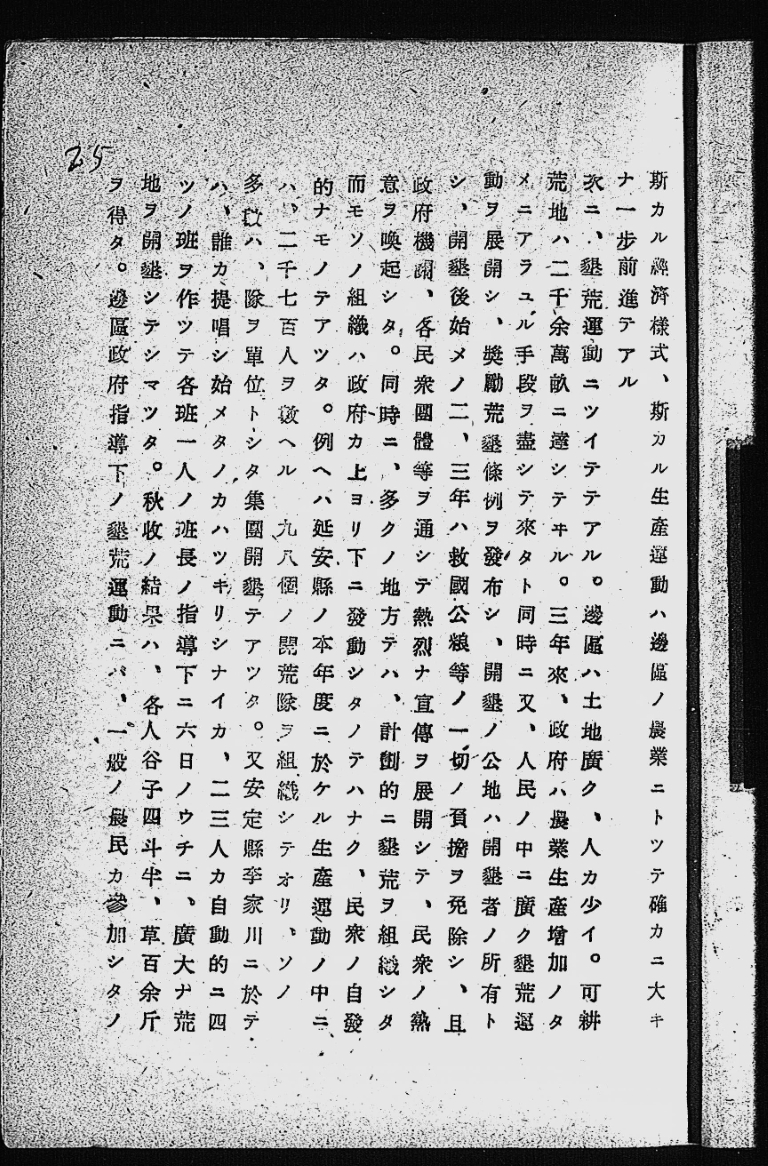 25
斯カル經済様式、斯カル生產運動ハ邊區ノ農業ニトツテ確カニ大キ
ナ一步前進テアル
次ニ、墾荒運動ニツイテテアル。邊區ハ土地廣ク、人カ少イ。可耕
荒地ハ二千余萬畝ニ達シテヰル。三年來、政府ハ農業生產增加ノタ
メニアラユル手段ヲ盡シテ來タト同時ニ又、人民ノ中ニ廣ク墾荒運
動ヲ展開シ、奬勵荒墾條例ヲ發布シ、開墾ノ公地ハ開墾者ノ所有ト
シ、開墾後始メノ二、三年ハ救國公粮等ノ一切ノ負擔ヲ免除シ、且
政府機關、各民衆團體等ヲ通シテ熱烈ナ宣傳ヲ展開シテ、民衆ノ熱
意ヲ喚起シタ。同時ニ、多クノ地方テハ、計劃的ニ墾荒ヲ組織シタ
而モソノ組織ハ政府カ上ヨリ下ニ發動シタノテハナク、民衆ノ自發
的ナモノテアツタ。例ヘハ延安縣ノ本年度ニ於ケル生產運動ノ中ニ
ハ、二千七百人ヲ數ヘル 九八個ノ開荒隊ヲ組織シテオリ、ソノ
多數ハ、隊ヲ單位トシタ集團開墾テアツタ。又安定縣李家川ニ於テ
ハ、誰カ提唱シ始メタノカハツキリシナイカ、二三人カ自動的ニ四
ツノ班ヲ作ツテ各班一人ノ班長ノ指導下ニ六日ノウチニ、廣大ナ荒
地ヲ開墾シテシマツタ。秋收ノ結果ハ、各人谷子四斗半、草百余斤
ヲ得タ。邊區政府指導下ノ墾荒運動ニハ、一般ノ農民カ參加シタノ